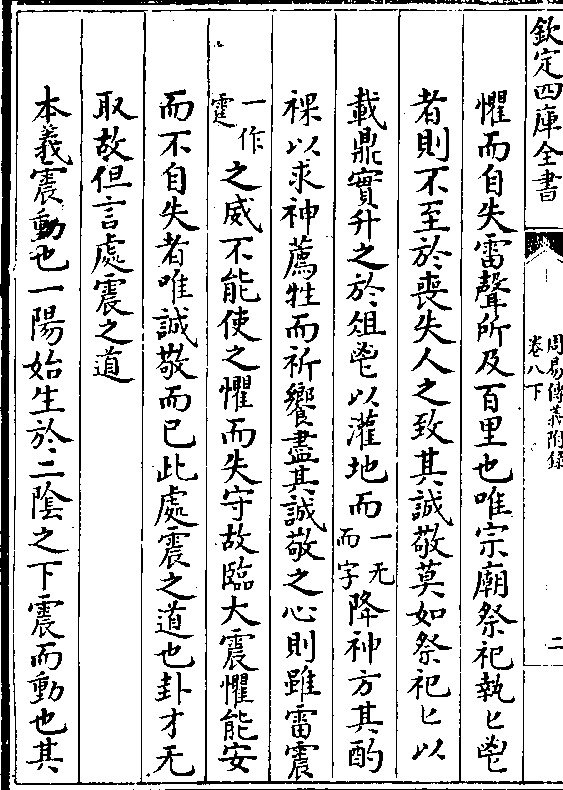 欽定四庫全書
周易傳義附錄
卷八下
二
懼而自失雷聲所及百里也唯宗廟祭祀執匕鬯
者則不至於喪失人之致其誠敬莫如祭祀匕以
載鼎實升之於俎鬯以灌地而一无而字降神方其酌
祼以求神薦牲而祈饗盡其誠敬之心則雖雷震
一作霆之威不能使之懼而失守故臨大震懼能安
而不自失者唯誠敬而已此處震之道也卦才无
取故但言處震之道
本義震動也一陽始生於二陰之下震而動也其